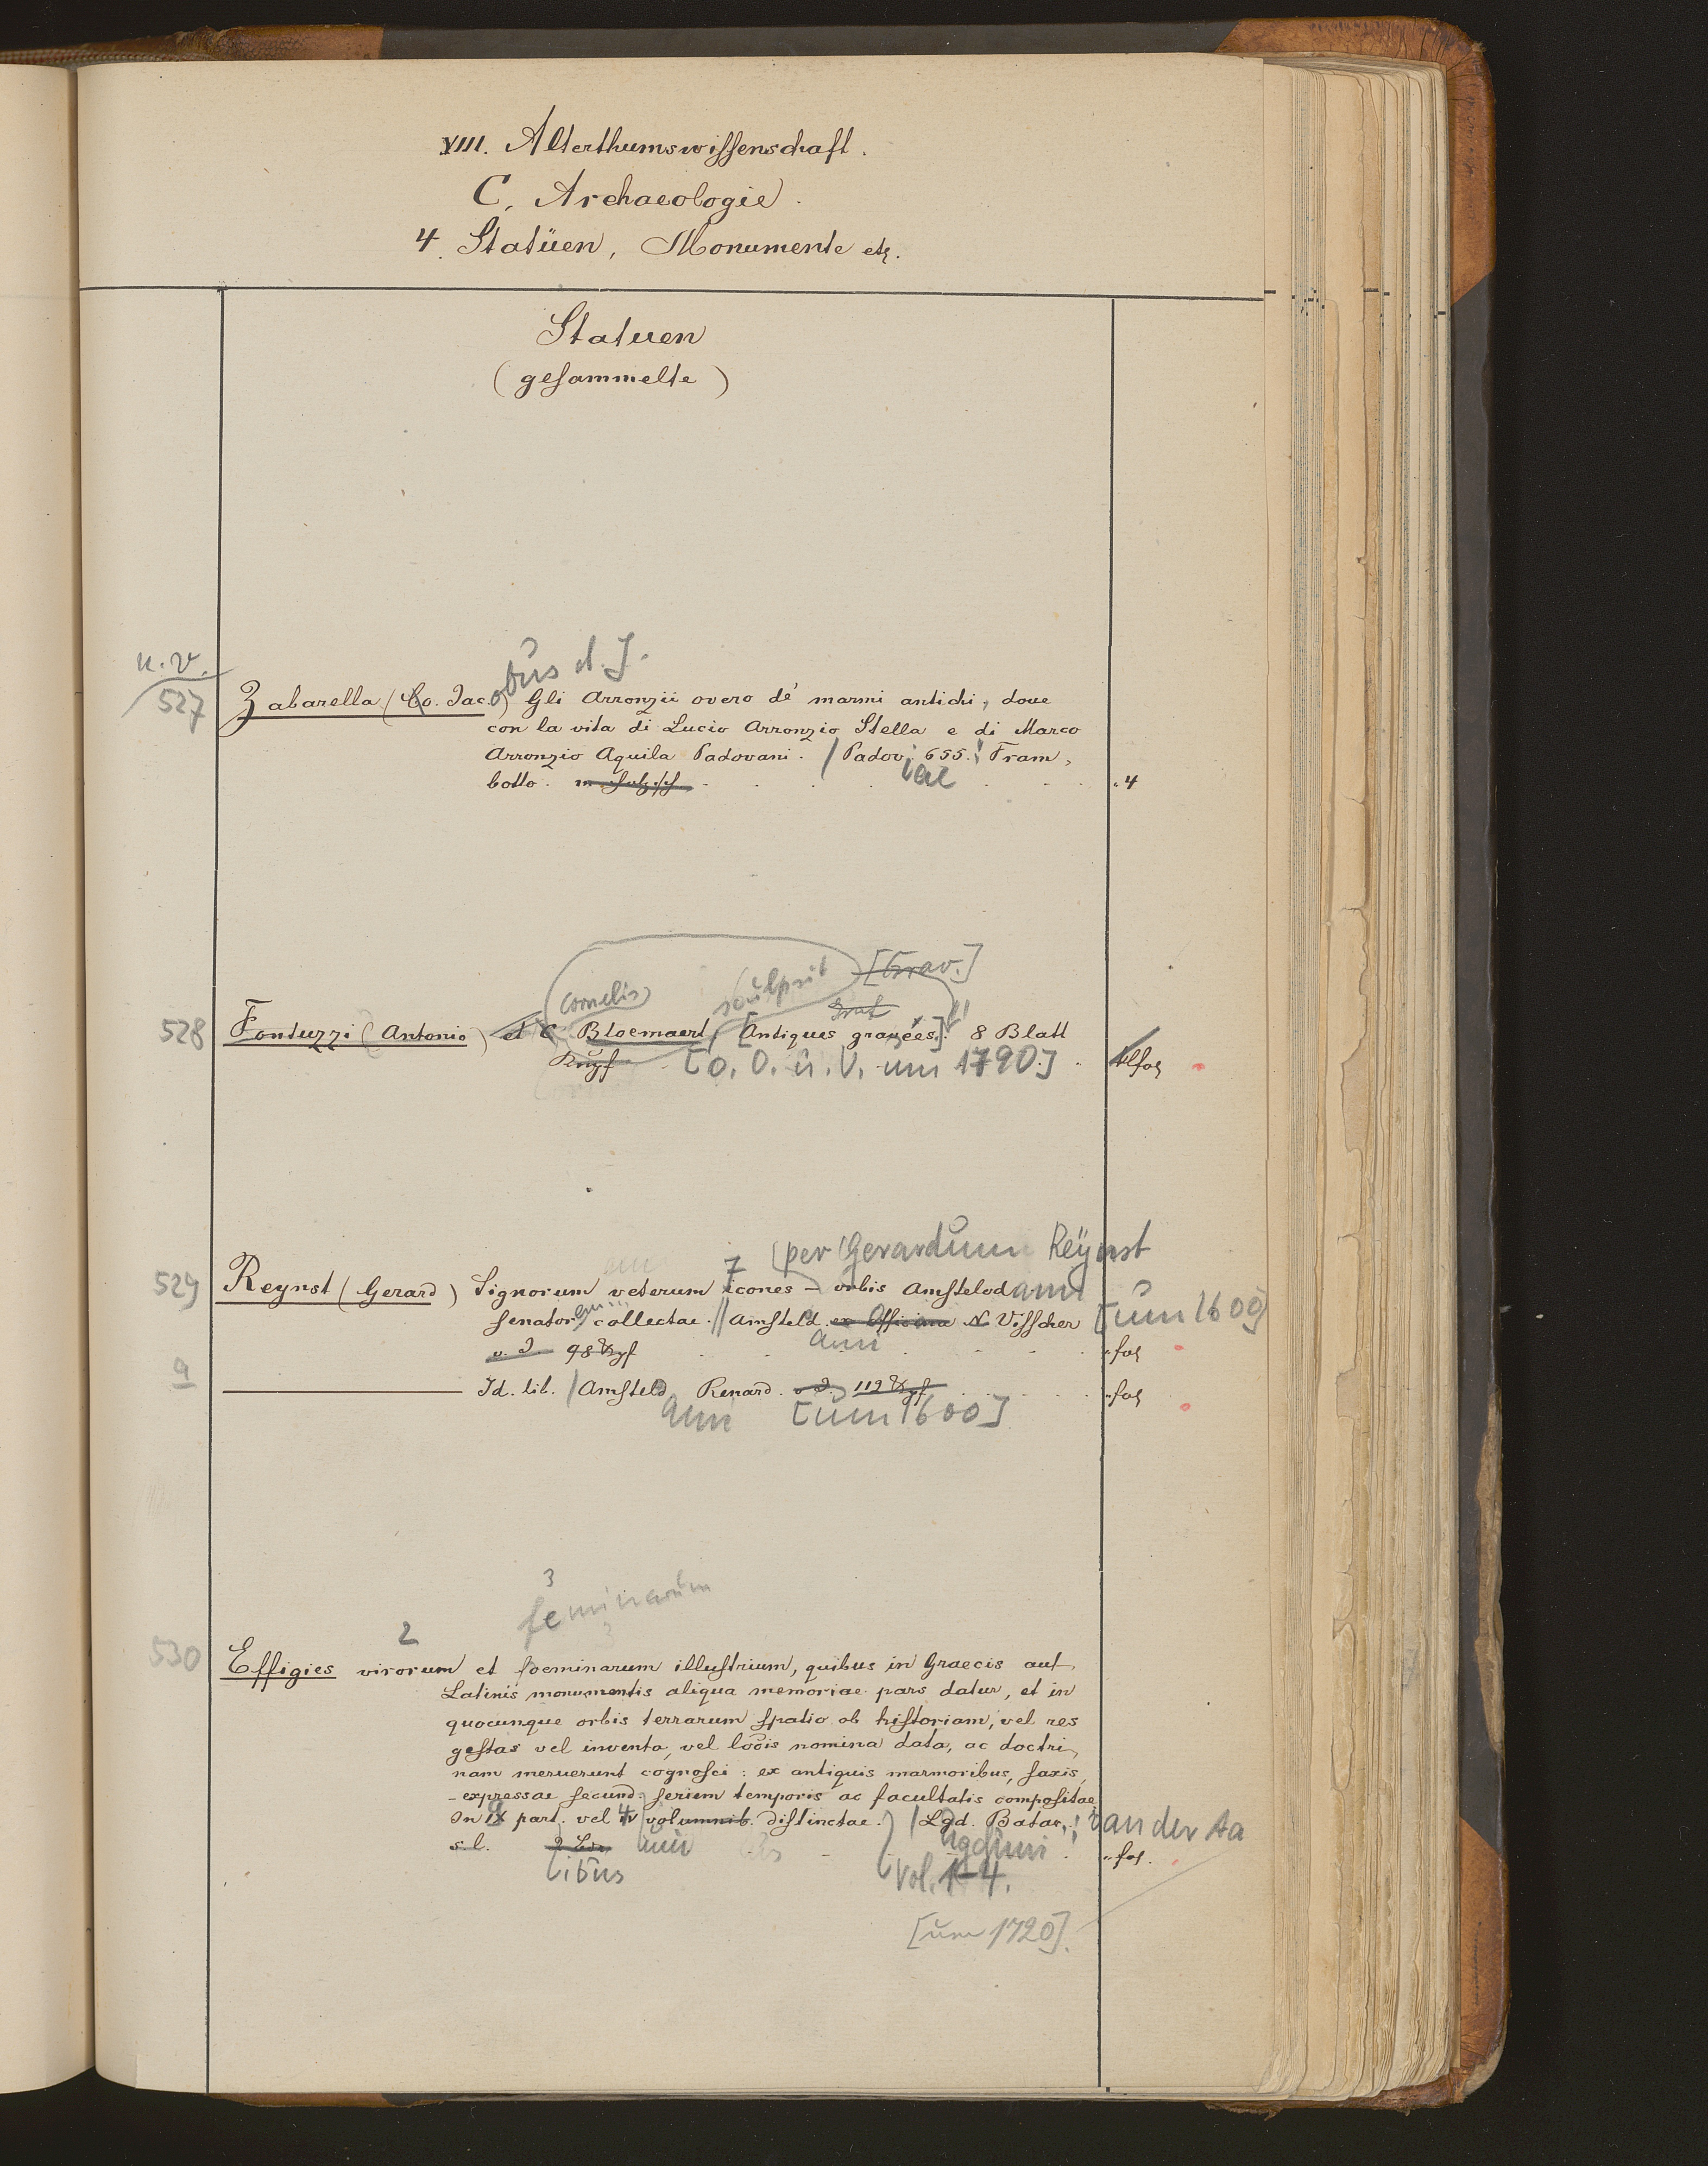 VIII. Alterthumswissenschaft.
C. Archaeologie.
4. Statüen, Monumente etc.
Statuen
(gesammelte)
n. v.
obus d. J.
527 Zabarella (Co. Jac.) Gli Arronzii overo de' marmi antichi, doue
con la vita di Lucio Arronzio Stella e di Marco
Arronzio Aquila Padovani. Padov. 655. Fram,
botto. 4
[Grav.]
Cornelis sculpsit
528 Fontuzzi (Antonio) et C. Bloemaert, [Antiques gravées]. 8 Blatt
Kupf [o. O. u. V. um 1790.]
7 (per Gerardum Reÿnst
529 Reynst (Gerard) Signorum veterum icones - orbis Amstelodami
senator. collectae. Amsteld. ex Officina N. Visscher [um 1600]
o. J. 98 Kpf fol
ami
a Id. lib. Amsteld. Renard. o. J. 119 Kpf fol
ami [um 1600]
3
feminarum
2
530 Effigies virorum et foeminarum illustrium, quibus in Graecis aut
Latinis monumentis aliqua memoriae pars datur, et in
quocunque orbis terrarum spatio ob historiam, vel res
gestas vel inventa, vel locis nomina data, ac doctri,
nam meruerunt cognosci: ex antiquis marmoribus, saxis,
- expressae secund. seriem temporis ac facultatis compositae
In IX part. vel IV volumnib. distinctae. Lgd. Batav. van der Aa
s. l. fol.
ibus Vol. 1-4.
[um 1720].